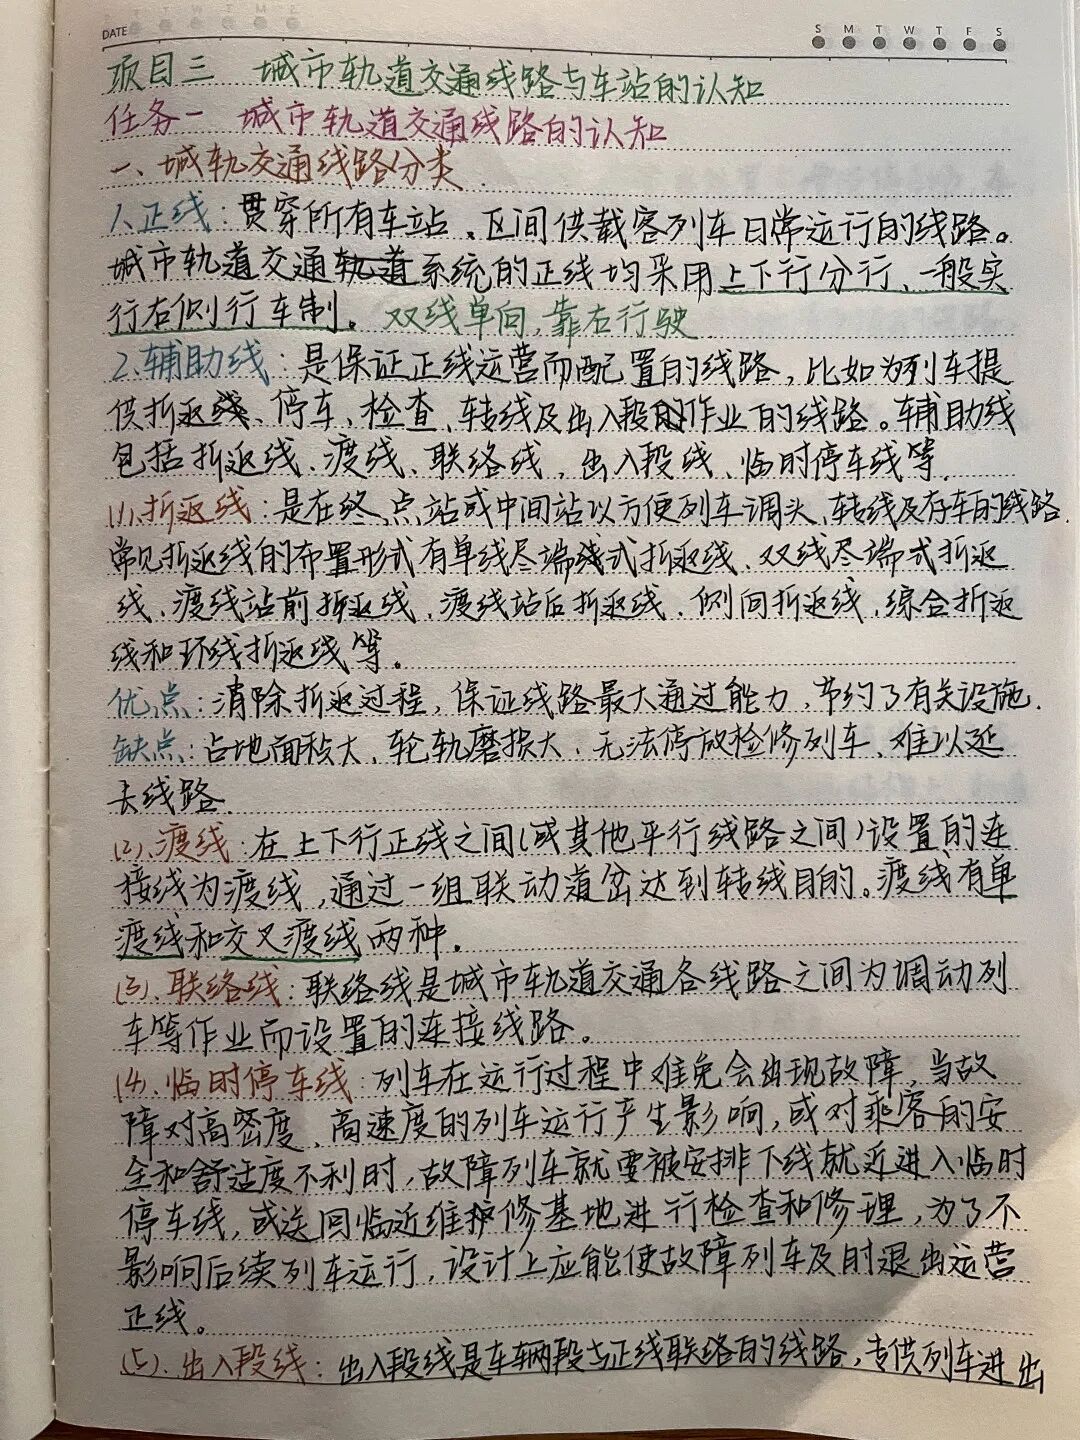 DATE
S M T W T F S
项目三 城市轨道交通线路与车站的认知
任务一 城市轨道交通线路的认知
一、城轨交通线路分类
1、正线：贯穿所有车站、区间供载客列车日常运行的线路。
城市轨道交通轨道系统的正线均采用上下行分行、一般实
行右侧行车制。双线单向，靠右行驶
2、辅助线：是保证正线运营而配置的线路，比如为列车提
供折返线、停车、检查、转线及出入段的作业的线路。辅助线
包括折返线、渡线、联络线，出入段线、临时停车线等.
(1)、折返线：是在终点站或中间站以方便列车调头、转线及存车的线路.
常见折返线的布置形式有单线尽端线式折返线、双线尽端式折返
线、渡线站前折返线、渡线站后折返线、侧向折返线、综合折返
线和环线折返线等。
优点：消除折返过程，保证线路最大通过能力，节约了有关设施.
缺点：占地面积大、轮轨磨损大、无法停放检修列车、难以延
长线路.
(2)、渡线：在上下行正线之间(或其他平行线路之间)设置的连
接线为渡线，通过一组联动道岔达到转线目的。渡线有单
渡线和交叉渡线两种.
(3)、联络线：联络线是城市轨道交通各线路之间为调动列
车等作业而设置的连接线路。
(4)、临时停车线：列车在运行过程中难免会出现故障，当故
障对高密度、高速度的列车运行产生影响，或对乘客的安
全和舒适度不利时，故障列车就要被安排下线就近进入临时
停车线，或送回临近维护修基地进行检查和修理，为了不
影响后续列车运行，设计上应能使故障列车及时退出运营
正线。
(5)、出入段线：出入段线是车辆段与正线联络的线路，专供列车进出